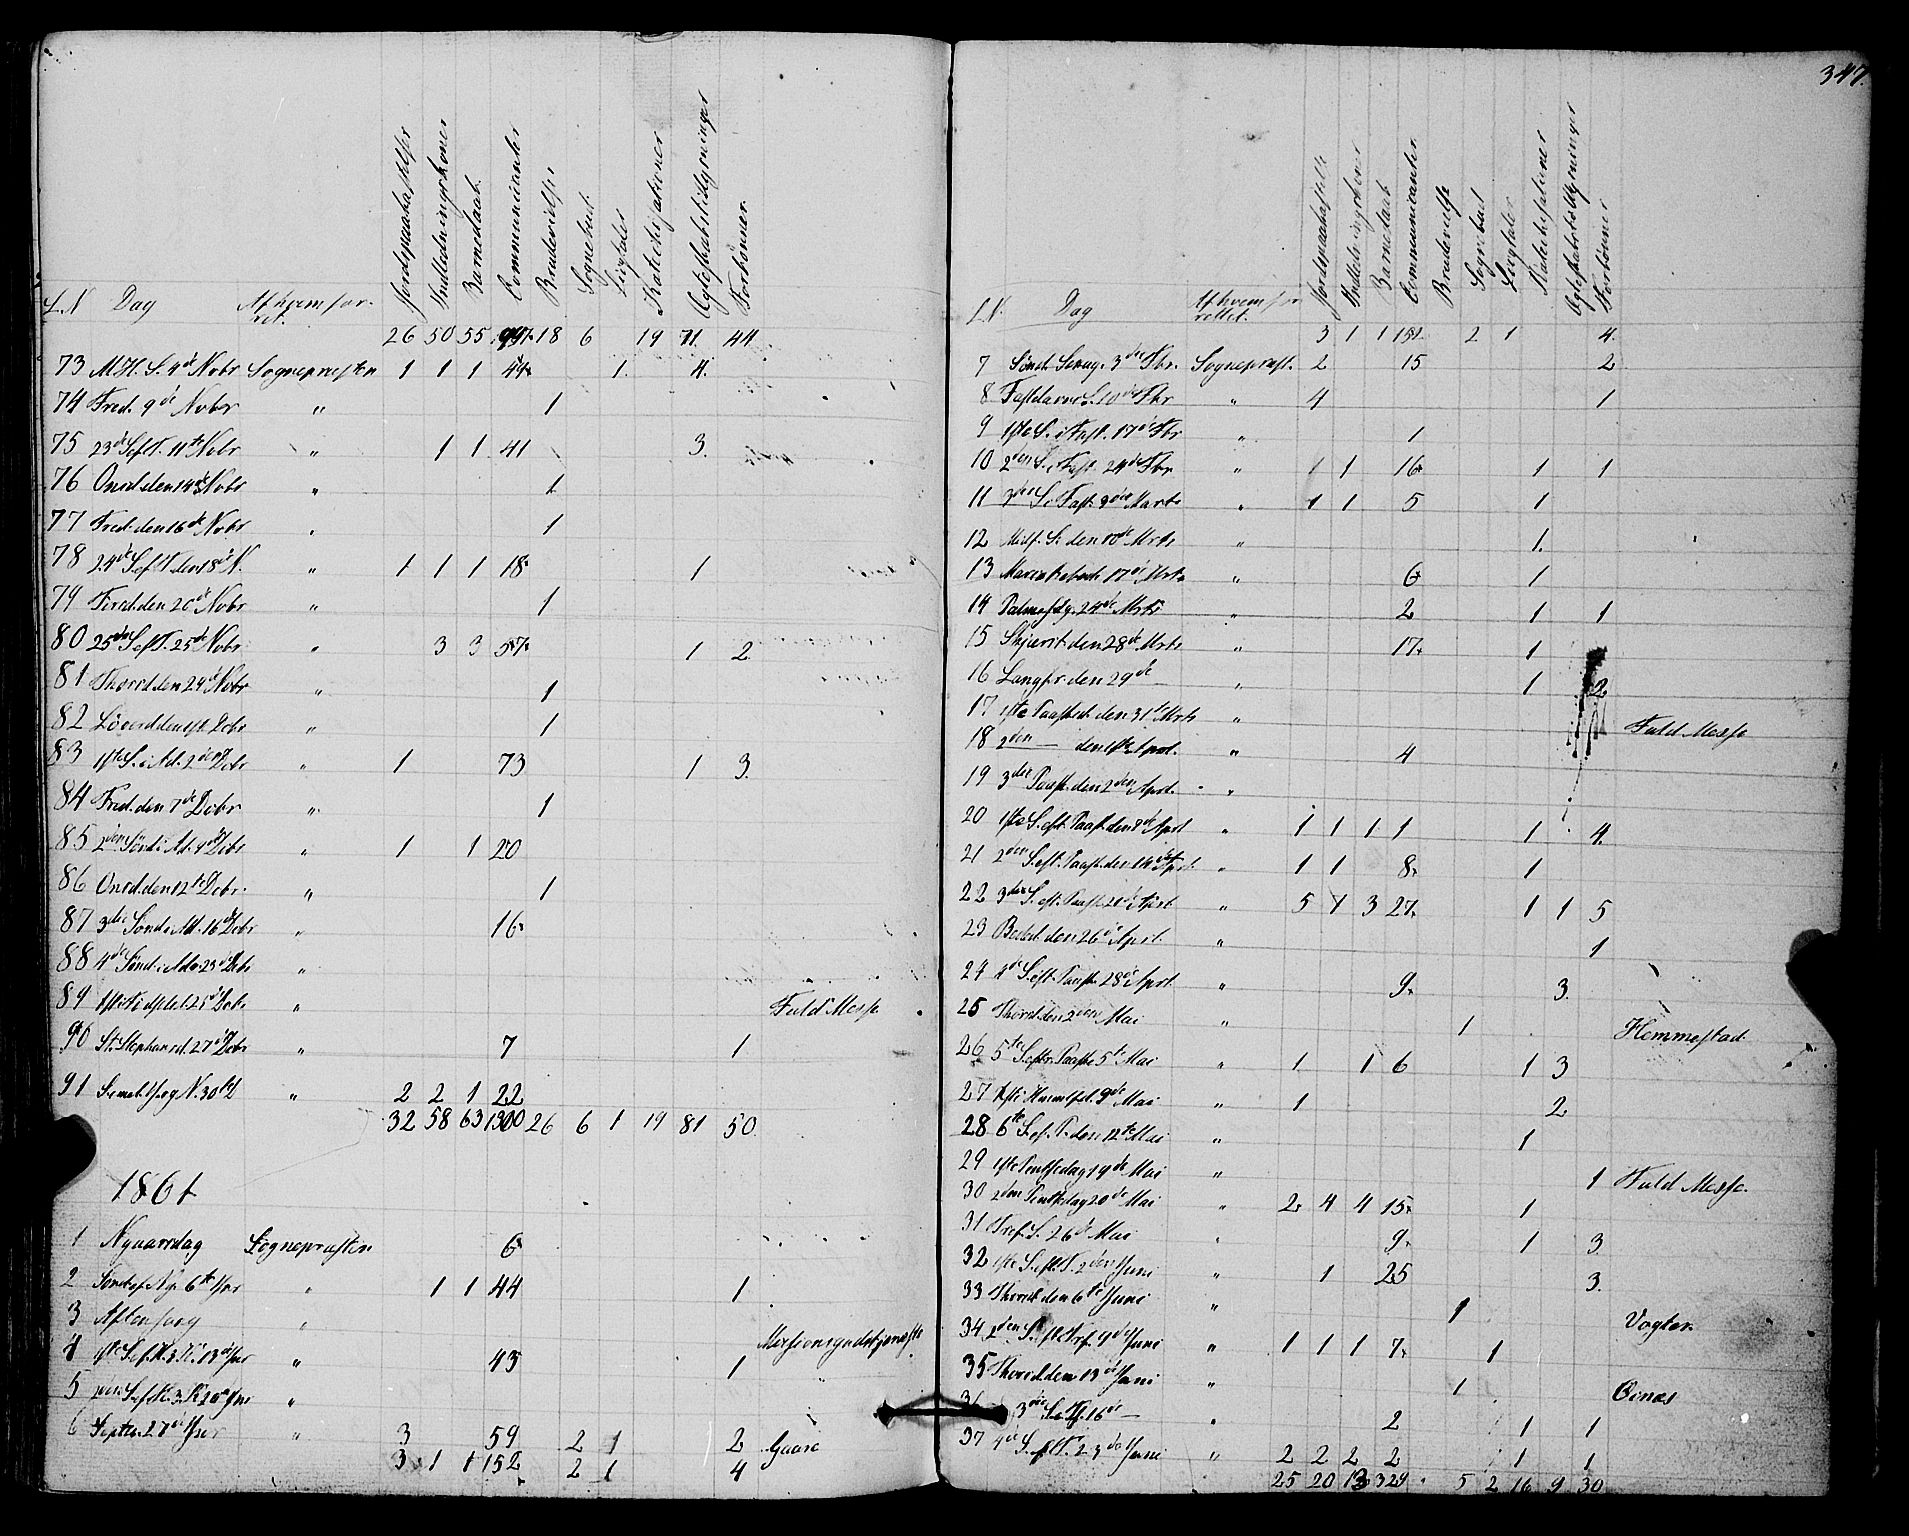 347.
L.N Dag Af hvem for-
ret. Jordspaakastelser Indledningskoner Barnedaab Communicanter Brudevielser Sognebud Liigtaler Katechisationer Ægteskabstillysninger Forbønner
26 50 55 997 18 6 19 71 44
73 M.H.S. 4de Nobr Sognepræsten 1 1 1 44 1. 4.
74 Fred. 9de Nobr " 1
75 23de S.ef.T. 11te Nobr " 1 1 41 3.
76 Onsd. den 14de Nobr " 1
77 Fred. den 16de Nobr " 1
78 24de S.ef.T. den 18de N. " 1 1 1 18 1
79 den 20de Nobr " 1
80 25de S.ef.T. 25de Nobr " 3 3 57 1 2
81 Thorsd. den 29de Nobr " 1
82 Løverd. den 1ste Decbr " 1
83 1ste S. i Ad. 2den Decbr " 1 73 1 3.
84 Fred. den 7de Decbr " 1
85 2den Sönd. i Ad. 9de Decbr " 1 1 20
86 Onsd. den 12te Decbr. " 1
87 3die Sönd. i Ad. 16de Decbr " 16
88 4de Sönd. i Adv. 23de Decbr "
89 1ste Juledag d. 25de Decbr " Fuld Messe
90 St. Stephansd. 27de Decbr " 7 1
91 S. mel. J og N. 30te D " 2 2 1 22
32 58 63 1300 26 6 1 19 81 50
1861
1 Nyaarsdag Sognepræsten 6
2 Sönd. ef. Nyr. 6te Jar " 1 1 44 1
3 Aftensang " Missionsgudstjeneste
4 1ste S.ef.H.3.K. 13de Jar " 43 1
5 2den S.ef.H.3.K. 20de Jar "
6 Septu. 27de Jar " 3 59 2 1 2 Gaare
3 1 1 152 2 1 4
L.N. Dag Af hvem for-
rettet. Jordspaakastelse Indledningskoner Barnedaab Communicanter Brudevielse Sognebud Liigtaler Katechisationer Ægteskabstillysninger Forbönner
3 1 1 152 2 1 4.
7 Sönd. Sexag. 3die Fbr. Sognepræst. 2 15 2
8 Fastelavns S. 10de Fbr " 4 1
9 1ste S. i Fast. 17de Fbr " 1
10 2den S. i Fast. 24de Fbr " 1 1 16 1 1
11 3die S. i Fast. 3die Marts " 1 1 5 1
12 Midf. S. den 10de Mrts " 1.
13 Mariæ Bebud. 17de Mrts " 6 1
14 Palmesdg. 24de Mrts " 2 1 1
15 Skjærst. den 28de Mrts " 17 1
16 Langfr. den 29de " 1 2
17 1ste Paaskd. den 31te Mrts " Fuld Messe
18 2den — den 1ste Aprl. " 4
19 3die Paaskd. den 2den Aprl. "
20 1ste S. eft. Paask. den 7de Aprl " 1 1 1 1 1 4.
21 2den S. eft. Paask. den 14de Aprl. " 1 1 8 1
22 3die S. eft. Paask. 21de Aprl. " 5 1 3 27 1 1 5
23 Beded. den 26de Aprl. " 1
24 4de S. eft. Paask. 28de Aprl. " 9 3.
25 Thorsd. den 2den Mai " 1 Hemmestad
26 5te S. eftr. Paaske 5te Mai " 1 1 6 1 3
27 Christi Himmelf. 9de Mai " 1 2
28 6te S. ef. P. den 12te Mai " 1
29 1ste Pentsedag 19de Mai " 1 Fuld Messe.
30 2den Pentsedag 20de Mai " 2 4 4 15 1
31 Tref. S. 26de Mai " 9 1 3
32 1ste S. eft. T. 2den Juni " 1 25 3.
33 Thorsd. den 6te Juni " 1 Vogter
34 2den S. eft. Tref. 9de Juni " 1 1 1 7 1
35 Thorsd. den 13de Juni " 1 Öinæs
36 3die S. e. T. 16de — " 2 1 1
37 4de S. eft. T. 23de Juni " 2 2 2 2 1 1
25 20 13 324 5 2 16 9 30